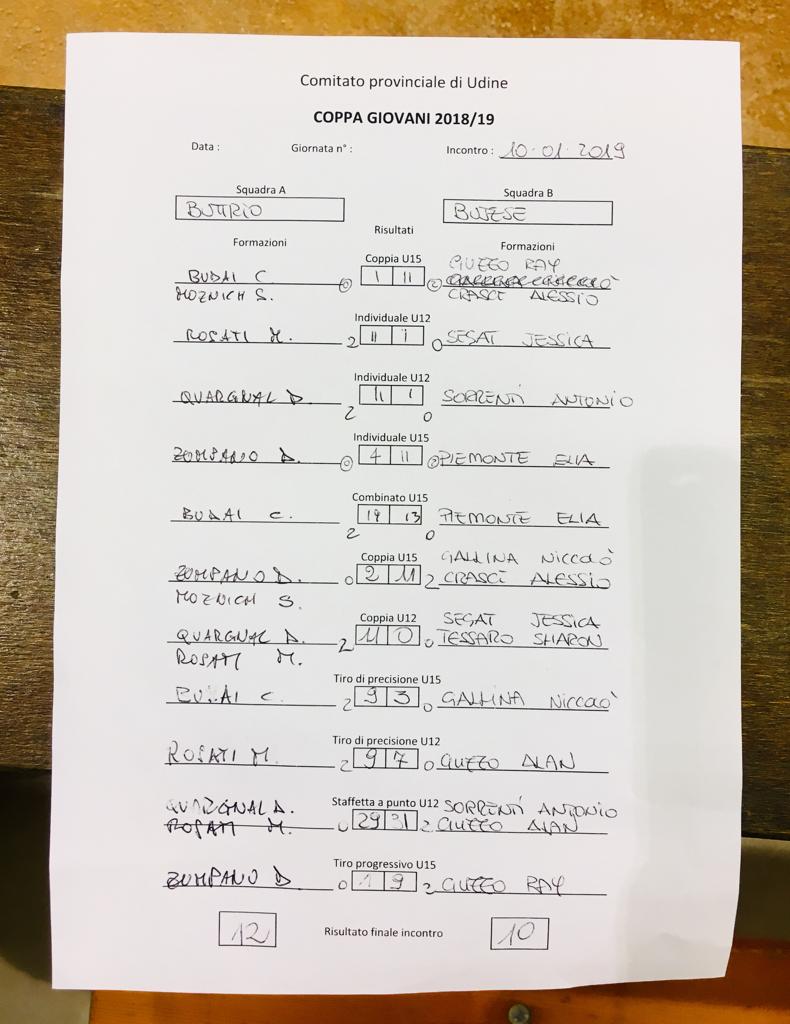 Comitato provinciale di Udine
COPPA GIOVANI 2018/19
Data : Giornata n° : Incontro : 10.01.2019
Squadra A Squadra B
BUTTRIO BUJESE
Risultati
Formazioni Formazioni
Coppia U15 GUZZO RAY
BUDAI C 0 1 11 2
MOZNICH S. CRASCÌ ALESSIO
Individuale U12
ROSATI M. 2 11 1 0 SEGAT JESSICA
Individuale U12
QUARGNAL D. 11 1 SORRENTÌ ANTONIO
2 0
Individuale U15
ZOMPANO D. 0 4 11 2 PIEMONTE ELIA
Combinato U15
BUDAI C. 19 13 PIEMONTE ELIA
2 0
Coppia U15 GALLINA NICCOLÒ
ZOMPANO D. 0 2 11 2 CRASCÌ ALESSIO
MOZNICH S.
Coppia U12 SEGAT JESSICA
QUARGNAL D. 2 11 0 0 TESSARO SHARON
ROSATI M.
Tiro di precisione U15
BUDAI C. 2 9 3 0 GALLINA NICCOLÒ
Tiro di precisione U12
ROSATI M. 2 9 7 0 GUZZO ALAN
QUARGNAL D. Staffetta a punto U12 SORRENTÌ ANTONIO
ROSATI M. 0 29 31 2 GUZZO ALAN
Tiro progressivo U15
ZOMPANO D 0 19 2 GUZZO RAY
12 Risultato finale incontro 10